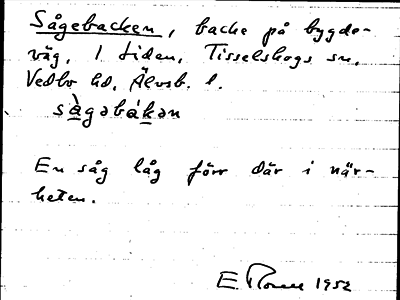 Sågebacken, backe på bygde-
väg, 1 Liden, Tisselskogs sn,
Vedbo hd, Älvsb. l.
sàgəbákən
En såg låg förr där i när-
heten.
E 1952